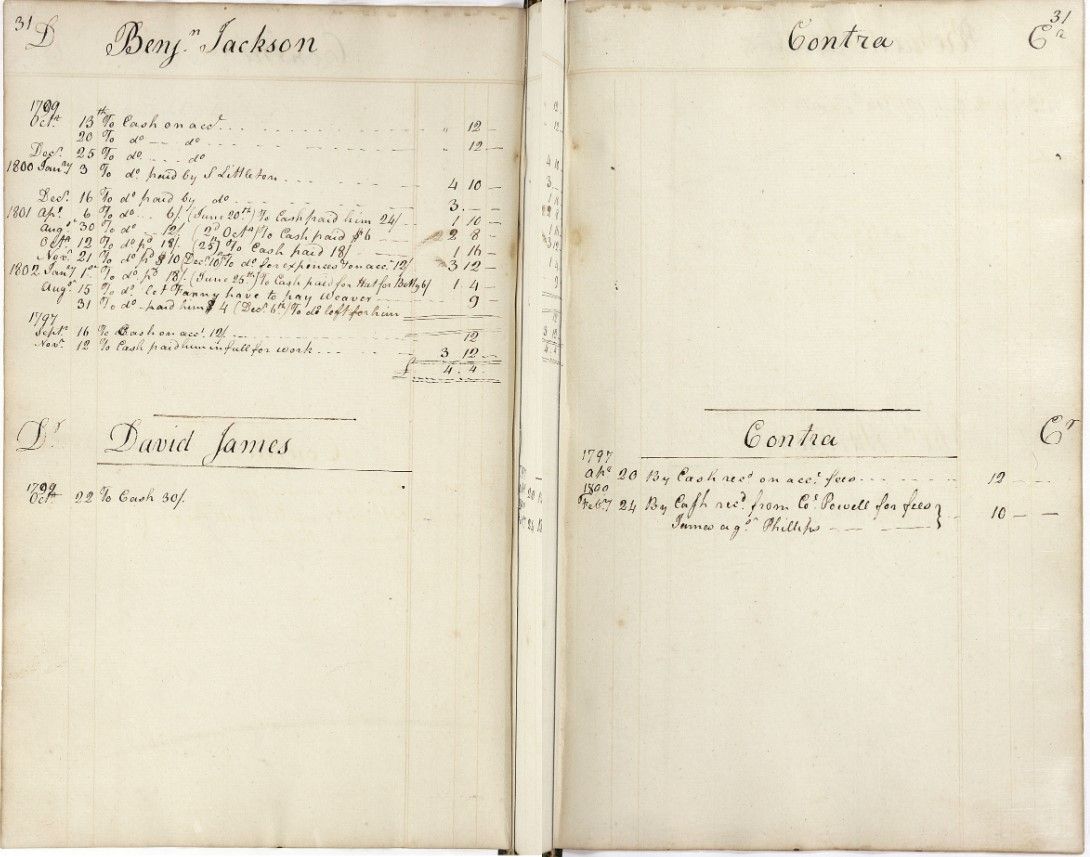 31 D Benjn Jackson
1799
Octr 13th To Cash on acct. 12 –
20 To do – do 12 –
Decr. 25 To do do
1800 Jany 3 To do paid by S Littleton 4 10 –
Decr. 16 To do paid by do 3 –
1801 Apl. 6 To do 6/. (June 20th) To Cash paid him 24/ 1 10 –
Augt 30 To do – 12/. (2d Octr) To Cash paid $6 2 8 –
Octr. 12 To do pd 18/. (25th) To Cash paid 18/ 1 16 –
Novr. 21 To do pd $10 Decr 10th To do for expences on acct. 12/ 3 12 –
1802 Jany 1st To do pd 18/. (June 25th) To Cash paid for Hat for Betty 6/ 1 4 –
Augt. 15 To do let Fanny have to pay Weaver 9 –
31 To do paid him $4 (Decr. 6th) To do left for him
1797
Septr 16 To Cash on acct. 12/ 12
Novr. 12 To Cash paid him in full for work 3 12 –
£ 4 . 4 .
Dr David James
1799
Octr 22 To Cash 30/.
31
Contra Cr
Contra Cr
1797
Apl 20 By Cash recd on acct. fees 12 – –
1800
Feby 24 By Cash recd. from Co. Powell for fees } 10 – –
James agt Phillips